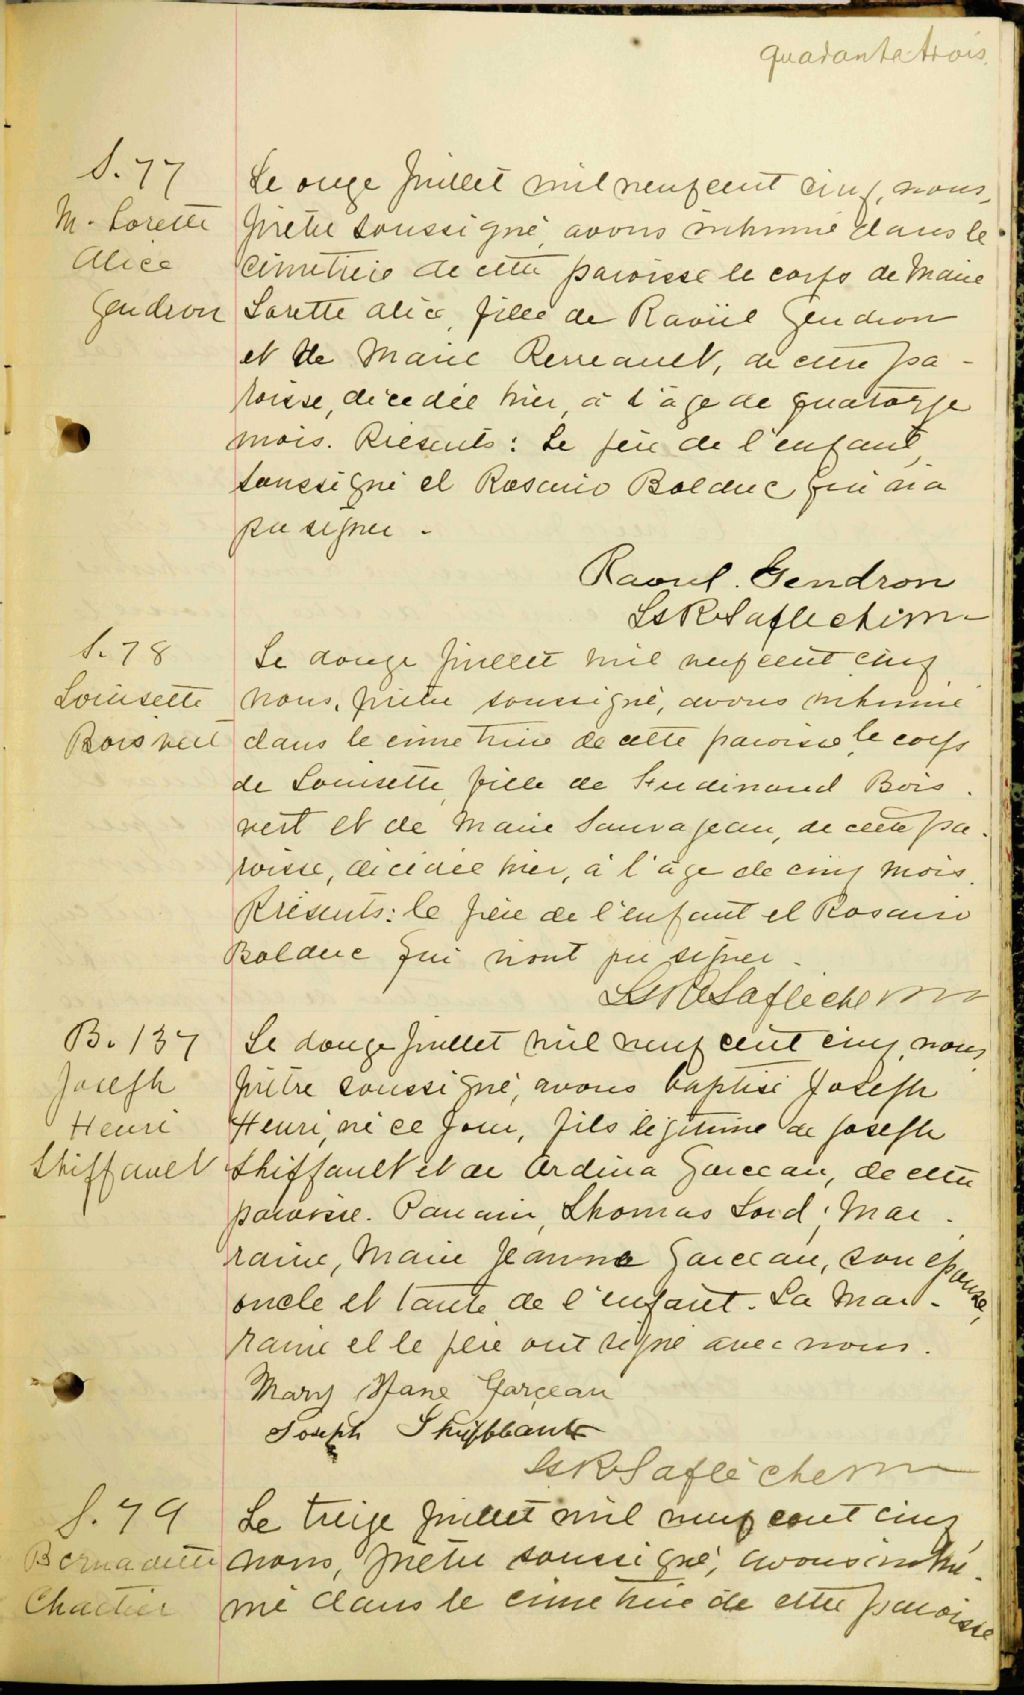 quarante trois.
S. 77
M. Lorette
Alice
Gendron
Le onze Juillet mil neuf cent cinq, nous,
prêtre soussigné, avons inhumé dans le
cimetière de cette paroisse le corps de Marie
Lorette Alice, fille de Raoül Gendron
et de Marie Perreault, de cette pa-
roisse, décédée hier, à l'âge de quatorze
mois. Présents: Le père de l'enfant,
soussigné et Rosario Bolduc qui n'a
pu signer.
Raoul. Gendron
Ls R Laflèche
S. 78
Louisette
Boisvert
Le douze Juillet mil neuf cent cinq
nous, prêtre soussigné, avons inhumé
dans le cimetière de cette paroisse, le corps
de Louisette, fille de Ferdinand Bois
vert et de Marie Sauvageau, de cette pa-
roisse, décédée hier, à l'âge de cinq mois.
Présents: le père de l'enfant et Rosario
Bolduc qui n'ont pu signer.
Ls R Laflèche
B. 137
Joseph
Henri
Shiffault
Le douze Juillet mil neuf cent cinq, nous
prêtre soussigné, avons baptisé Joseph
Henri, né ce jour, fils légitime de Joseph
Shiffault et de Ardina Garceau, de cette
paroisse. Parrain, Thomas Lord; Mar-
raine, Marie Jeanne Garceau, son épouse,
oncle et tante de l'enfant. La Mar-
raine et le père ont signé avec nous.
Mary Jane Garceau
Joseph
Ls R Laflèche
S. 79
Bernadette
Chartier
Le treize Juillet mil neuf cent cinq,
nous, prêtre soussigné, avons inhu-
mé dans le cimetière de cette paroisse